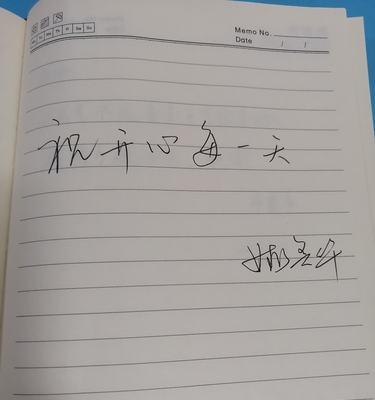 Mo Tu We Th Fr Sa Su
Memo No.
Date / /
祝开心每一天